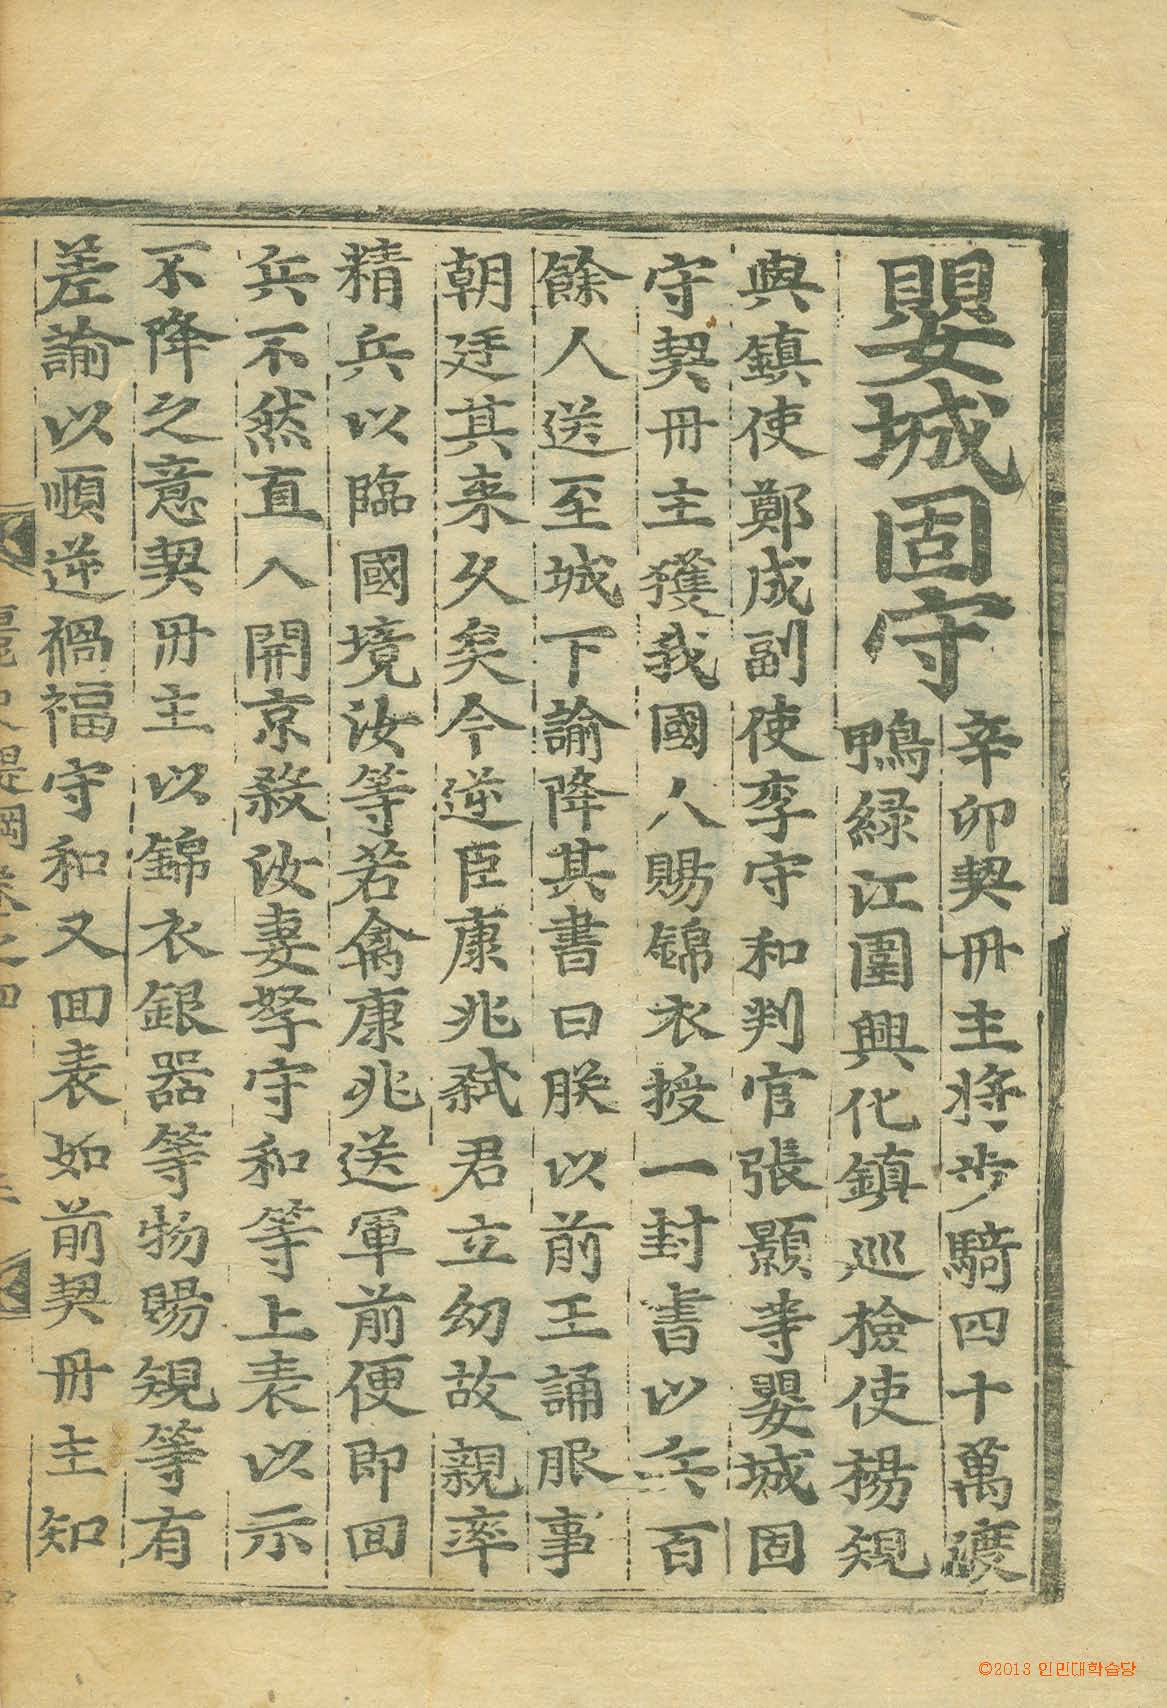 嬰城固守
辛卯契丹主將步騎四十萬渡
鴨綠江圍興化鎮巡檢使楊規
與鎮使鄭成副使李守和判官張顥等嬰城固
守契丹主獲我國人賜錦衣授一封書以兵百
餘人送至城下諭降其書曰朕以前王誦服事
朝廷其来久矣今逆臣康兆弑君立幼故親率
精兵以臨國境汝等若禽康兆送軍前便即回
兵不然直入開京殺汝妻孥守和等上表以示
不降之意契丹主以錦衣銀器等物賜規等有
差諭以順逆禍福守和又回表如前契丹主知
麗史提綱卷之四
©2013 인민대학습당